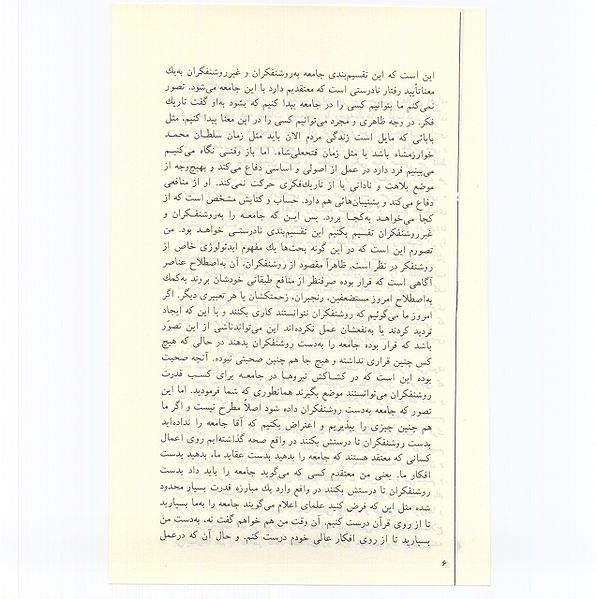 این است که این تقسیم‌بندی جامعه به‌روشنفکران و غیرروشنفکران به‌یك
معناتأیید رفتار نادرستی است که معتقدیم دارد با این جامعه می‌شود. تصور
نمی‌کنم ما بتوانیم کسی را در جامعه پیدا کنیم که بشود به‌او گفت تاریك
فکر. در وجه ظاهری و مجرد می‌توانیم کسی را در این معنا پیدا کنیم، مثل
بابائی که مایل است زندگی مردم الان باید مثل زمان سلطان محمد
خوارزمشاه باشد یا مثل زمان فتحعلی‌شاه. اما باز وقتی نگاه می‌کنیم
می‌بینیم فرد دارد در عمل از اصولی و اساسی دفاع می‌کند و بهیچ‌وجه از
موضع بلاهت و نادانی یا از تاریك‌فکری حرکت نمی‌کند. او از منافعی
دفاع می‌کند و پشتیبان‌هائی هم دارد. حساب و کتابش مشخص است که از
کجا می‌خواهد به‌کجا برود. پس این که جامعه را به‌روشنفکران و
غیرروشنفکران تقسیم بکنیم این تقسیم‌بندی نادرستی خواهد بود. من
تصورم این است که در این گونه بحث‌ها یك مفهوم ایدئولوژی خاص از
روشنفکر در نظر است. ظاهراً مقصود از روشنفکران، آن به‌اصطلاح عناصر
آگاهی است که قرار بوده صرفنظر از منافع طبقاتی خودشان بروند به‌کمك
به‌اصطلاح امروز مستضعفین، رنجبران، زحمتکشان یا هر تعبیری دیگر. اگر
امروز ما می‌گوئیم که روشنفکران نتوانستند کاری بکنند و یا این که ایجاد
تردید کردند یا به‌نفعشان عمل نکرده‌اند این می‌تواندناشی از این تصوّر
باشد که قرار بوده جامعه را به‌دست روشنفکران بدهند در حالی که هیچ
کس چنین قراری نداشته و هیچ جا هم چنین صحبتی نبوده. آنچه صحبت
بوده این است که در کشاکش نیروها در جامعه برای کسب قدرت
روشنفکران می‌توانستند موضع بگیرند همانطوری که شما فرمودید. اما این
تصور که جامعه به‌دست روشنفکران داده شود اصلاً مطرح نیست و اگر ما
هم چنین چیزی را بپذیریم و اعتراض بکنیم که آقا جامعه را نداده‌اید
بدست روشنفکران تا درستش بکنند در واقع صحه گذاشته‌ایم روی اعمال
کسانی که معتقد هستند که جامعه را بدهید بدست عقاید ما، بدهید بدست
افکار ما. یعنی من معتقدم کسی که می‌گوید جامعه را باید داد بدست
روشنفکران تا درستش بکنند در واقع وارد یك مبارزه قدرت بسیار محدود
شده مثل این که فرض کنید علمای اعلام می‌گویند جامعه را به‌ما بسپارید
تا از روی قرآن درست کنیم. آن وقت من هم خواهم گفت نه، به‌دست من
بسپارید تا از روی افکار عالی خودم درست کنم. و حال آن که درعمل
۶